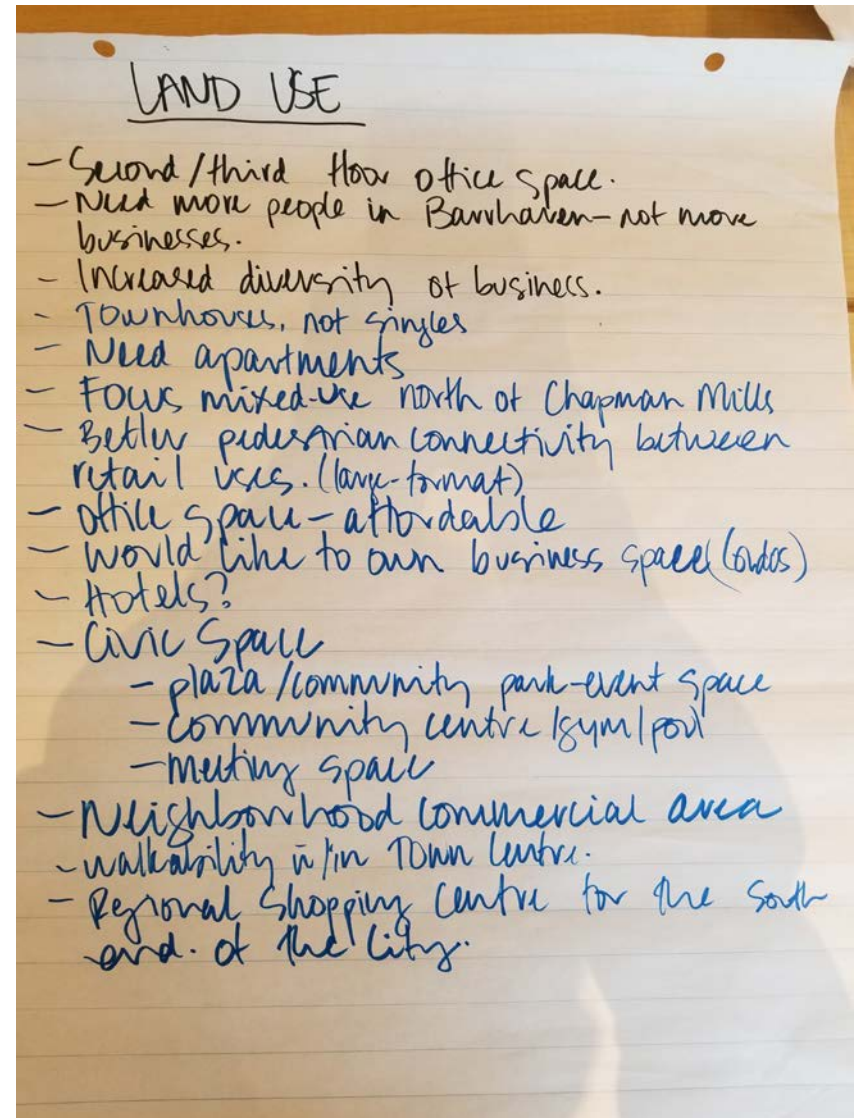 LAND USE
- Second/third floor office space.
- Need more people in Barrhaven - not more
businesses.
- Increased diversity of business.
- Townhouses, not singles
- Need apartments
- Focus mixed-use north of Chapman Mills
- Better pedestrian connectivity between
retail uses. (large-format)
- Office space - affordable
- Would like to own business space (condos)
- Hotels?
- Civic Space
- plaza/community park-event space
- Community centre/gym/pool
- meeting space
- Neighbourhood commercial area
- walkability w/in Town Centre.
- Regional Shopping Centre for the South
end. of the City.